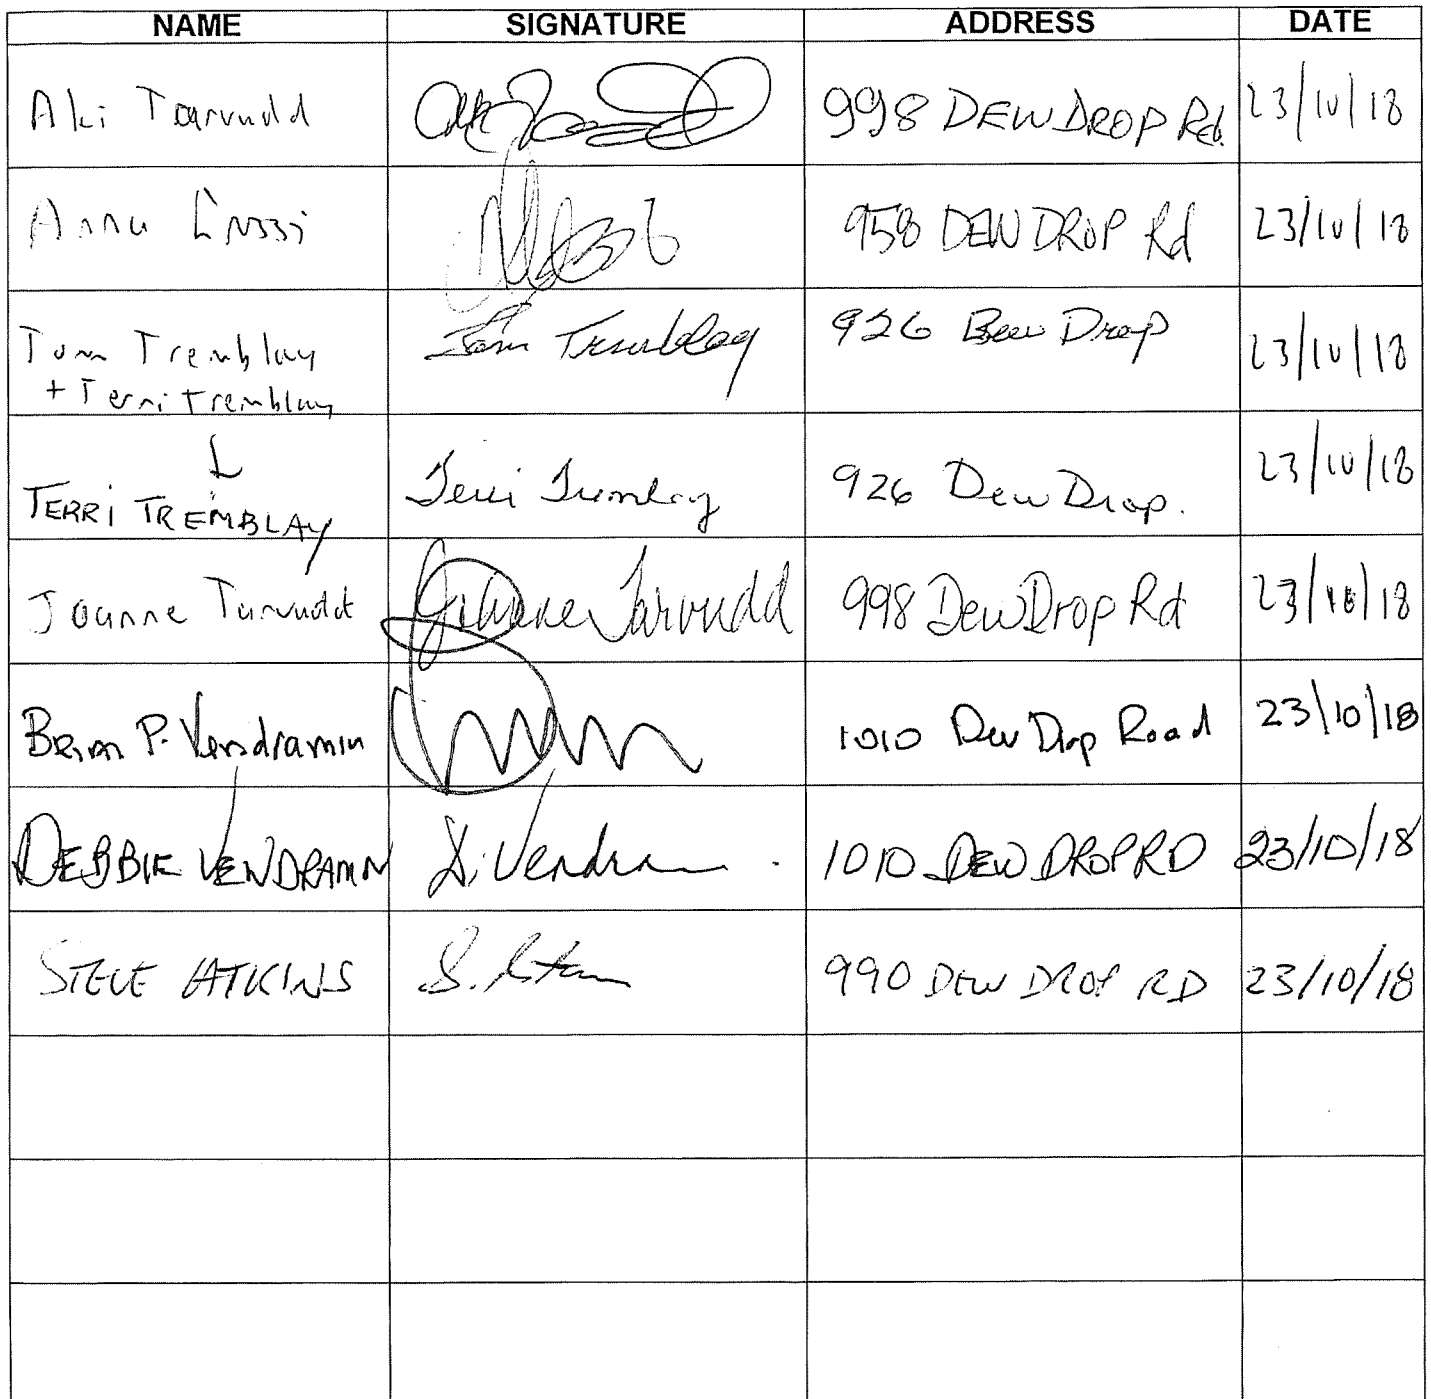 NAME SIGNATURE ADDRESS DATE
Aki Tarvudd 998 DEW DROP Rd. 23/10/18
Anna 958 DEW DROP Rd 23/10/18
Tom Tremblay Tom Tremblay 926 Dew Drop 23/10/18
+ Terri Tremblay
TERRI TREMBLAY Terri Tremblay 926 Dew Drop. 23/10/18
Joanne Tarvudd Johanne Tarvudd 998 Dew Drop Rd 23/10/18
Brian P. Vendramin 1010 Dew Drop Road 23/10/18
DEBBIE VENDRAMIN D. Vendram 1010 DEW DROP RD 23/10/18
STEVE ATKINS S. 990 DEW DROP RD 23/10/18